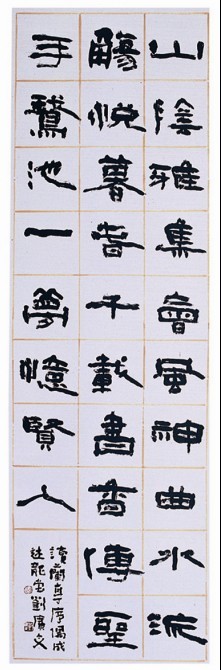 山陰雅集會風神曲水流
觴悅暮春千載書香傳聖
手鵝池一夢憶賢人
讀蘭亭序偶成
龍堂劉廣文